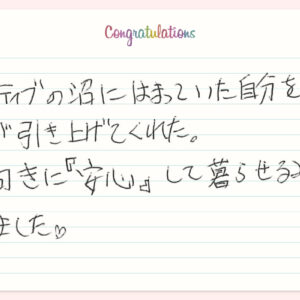 Congratulations
ティブの沼にはまっていた自分を
引き上げてくれた。
向きに『安心』して暮らせる
ました♡